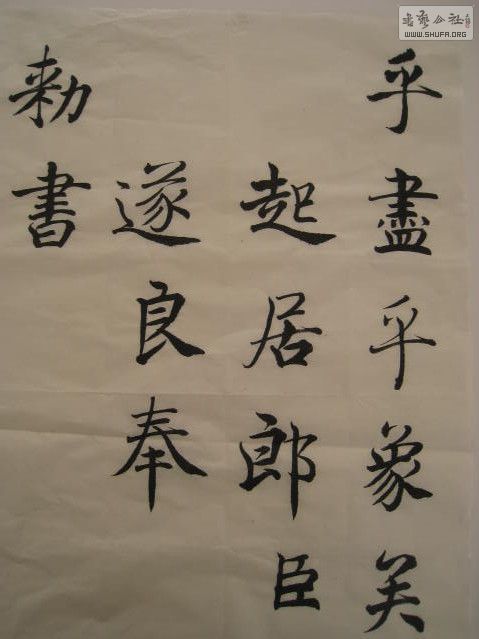 書藝公社
WWW.SHUFA.ORG
乎盡乎象矣
起居郎臣
遂良奉
勅書